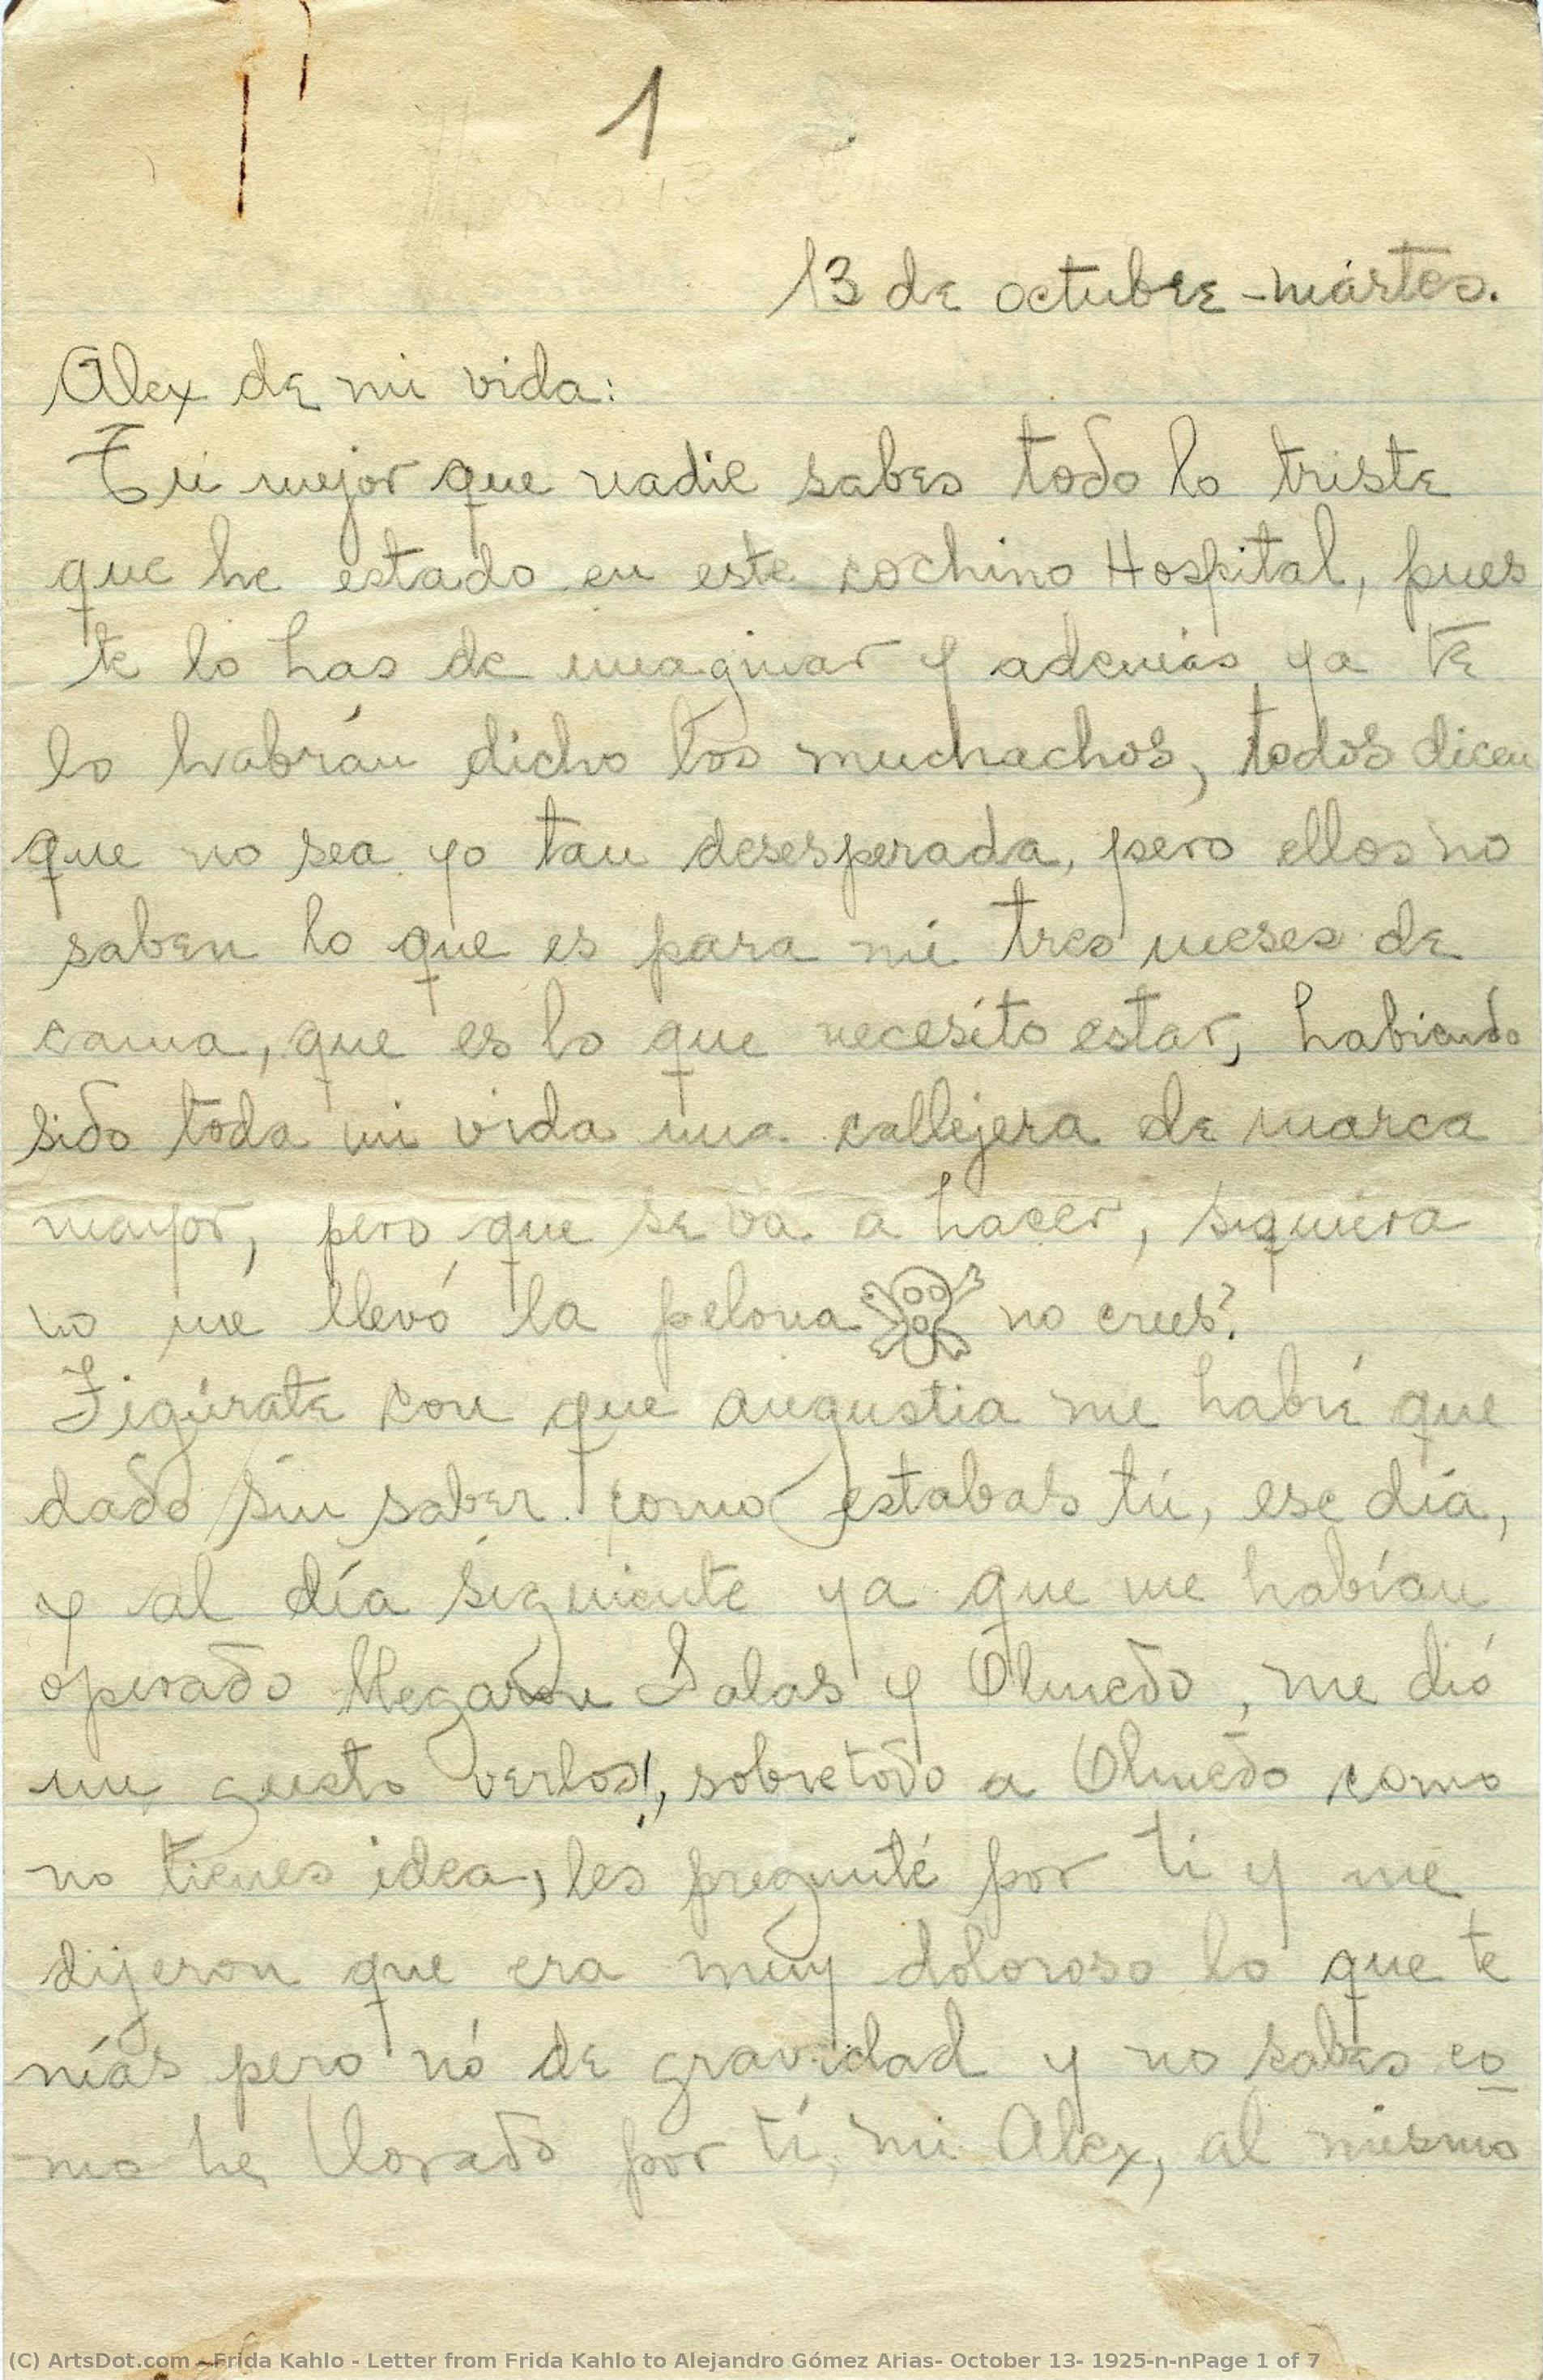 1
13 de octubre - mártes.
Alex de mi vida:
Tú mejor que nadie sabes todo lo triste
que he estado en este cochino Hospital, pues
te lo has de imaginar y además ya te
lo habrán dicho los muchachos, todos dicen
que no sea yo tan desesperada, pero ellos no
saben lo que es para mí tres meses de
cama, que es lo que necesito estar, habiendo
sido toda mi vida una callejera de marca
mayor, pero que se va a hacer, siquiera
no me llevó la pelona no crees?
Figúrate con que angustia me habré que
dado sin saber como estabas tú, ese día,
y al día siguiente ya que me habían
operado llegaron Salas y Olmedo, me dió
un gusto verlos!, sobretodo a Olmedo como
no tienes idea, les pregunté por ti y me
dijeron que era muy doloroso lo que te
nías pero nó de gravedad y no sabes co
mo he llorado por tí, mi Alex, al mismo
(C) ArtsDot.com - Frida Kahlo - Letter from Frida Kahlo to Alejandro Gómez Arias- October 13- 1925-n-nPage 1 of 7